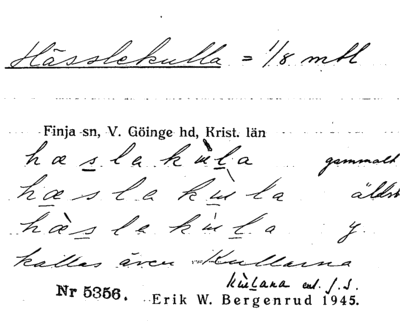 Hässlekulla = 1/8 mtl
Finja sn, V. Göinge hd, Krist. län
hæslakùla gammalt
hæslakùla äldst
hæ̀slakùla y
kallas även Kullarna
kùḷana enl. J. S.
Nr 5356. Erik W. Bergenrud 1945.